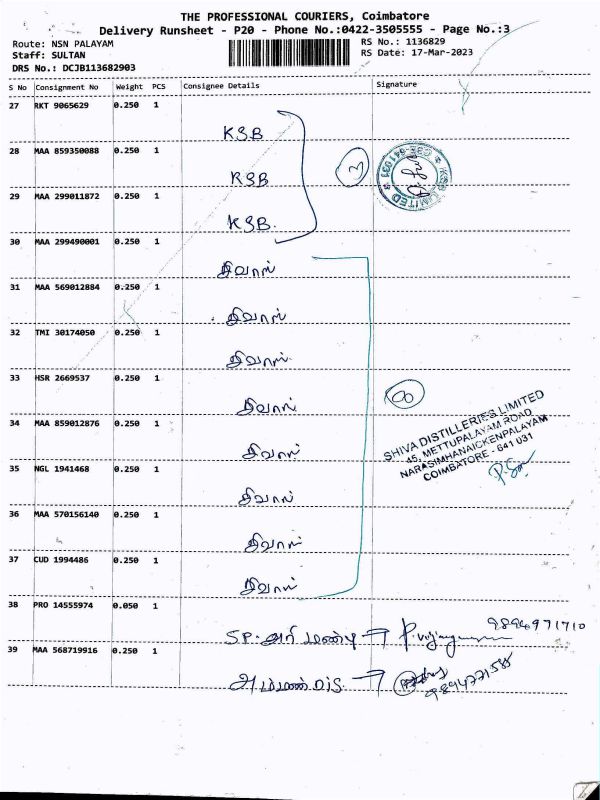 THE PROFESSIONAL COURIERS, Coimbatore
Delivery Runsheet - P20 - Phone No.:0422-3505555 - Page No.:3
Route: NSN PALAYAM
RS No.: 1136829
Staff: SULTAN
RS Date: 17-Mar-2023
DRS No.: DCJB113682903
S No Consignment No Weight PCS Consignee Details Signature
27 RKT 9065629 0.250 1
KSB
28 MAA 859350088 0.250 1
3
KSB LIMITED
CBE-641031
KSB
29 MAA 299011872 0.250 1
KSB.
30 MAA 299490001 0.250 1
சிவாஸ்
31 MAA 569012884 0.250 1
சிவாஸ்
32 TMI 30174050 0.250 1
சிவாஸ்
33 HSR 2669537 0.250 1
8
சிவாஸ்
SHIVA DISTILLERIES LIMITED
45, METTUPALAYAM ROAD
NARASIMHANAICKENPALAYAM
COIMBATORE - 641 031
34 MAA 859012876 0.250 1
சிவாஸ்
35 NGL 1941468 0.250 1
சிவாஸ்
36 MAA 570156140 0.250 1
சிவாஸ்
37 CUD 1994486 0.250 1
சிவாஸ்
38 PRO 14555974 0.050 1
9894971710
S.P. அரி மண்டி
39 MAA 568719916 0.250 1
அம்மன்